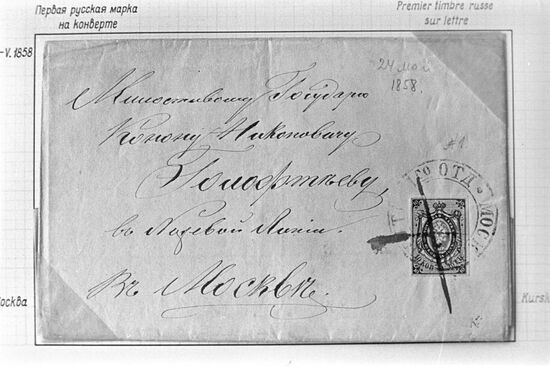 Первая русская марка
на конверте
Premier timbre russe
sur lettre
-V. 1858
24 мая
1858.
Милостивому Государю
Конону Никоновичу
Голофтееву,
#1
ГО ОТД МОСК
въ Хозевой линіи.
Въ Москвѣ.
осква
Kursk